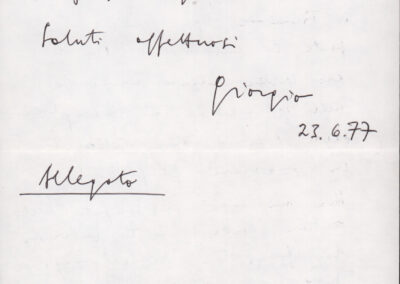 Saluti affettuosi
Giorgio
23.6.77
Allegato